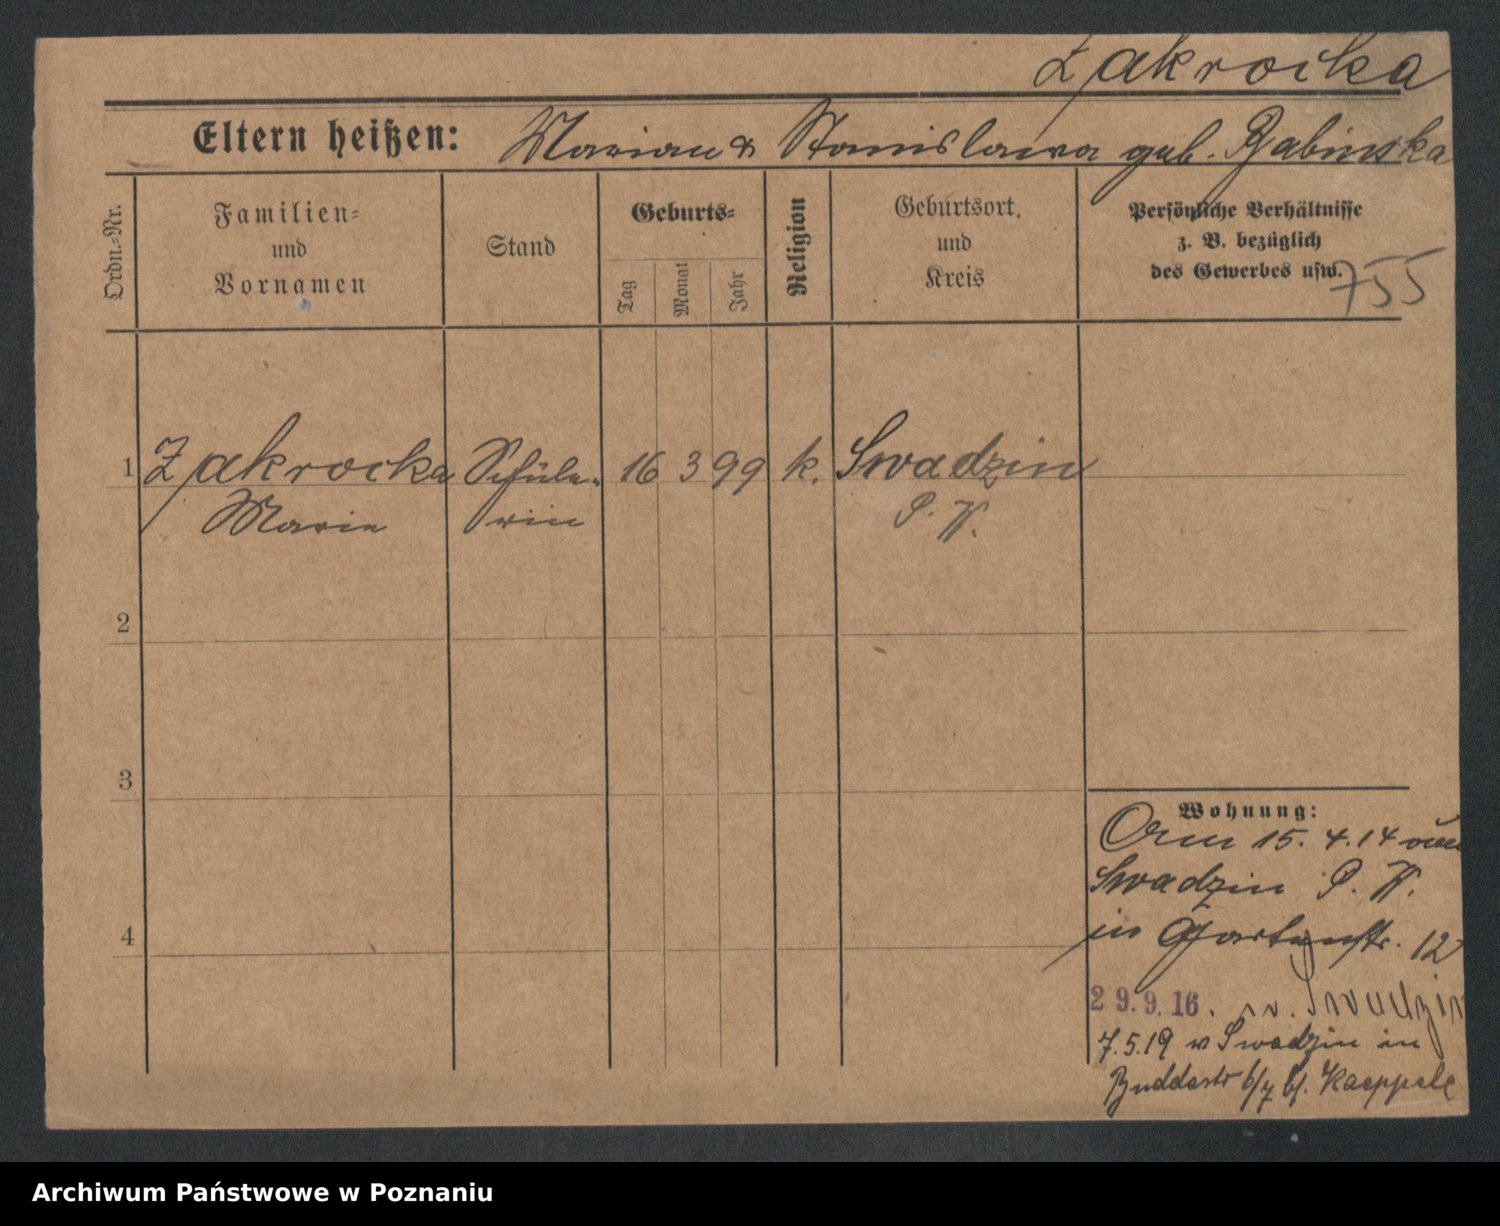 Zakrocka
Eltern heißen: Marian & Stanislawa geb. Babinska
Ordn.-Nr.
Familien-
und
Vornamen
Stand
Geburts-
Tag
Monat
Jahr
Religion
Geburtsort.
und
Kreis
Persönliche Verhältnisse
z. B. bezüglich
des Gewerbes usw.
755
1 Zakrocka Schüle- 16 3 99 k. Swadzin
Marie rin P. W.
2
3
4
Wohnung:
Am 15. 4. 14 von
Swadzin P. W.
in Gartenstr. 12
29.9.16. n. Swadzin
7.5.19 v Swadzin in
Buddestr 6/7 b/. Kaeppele
Archiwum Państwowe w Poznaniu